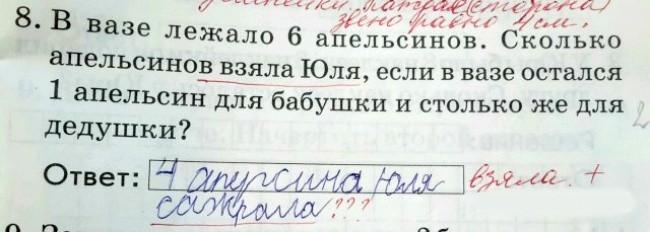 ломаной, которая (сторона)
звено равно 4 см.
8. В вазе лежало 6 апельсинов. Сколько
апельсинов взяла Юля, если в вазе остался
1 апельсин для бабушки и столько же для 2
дедушки?
Ответ: 4 апурсина Юля взяла. +
сажрала ???